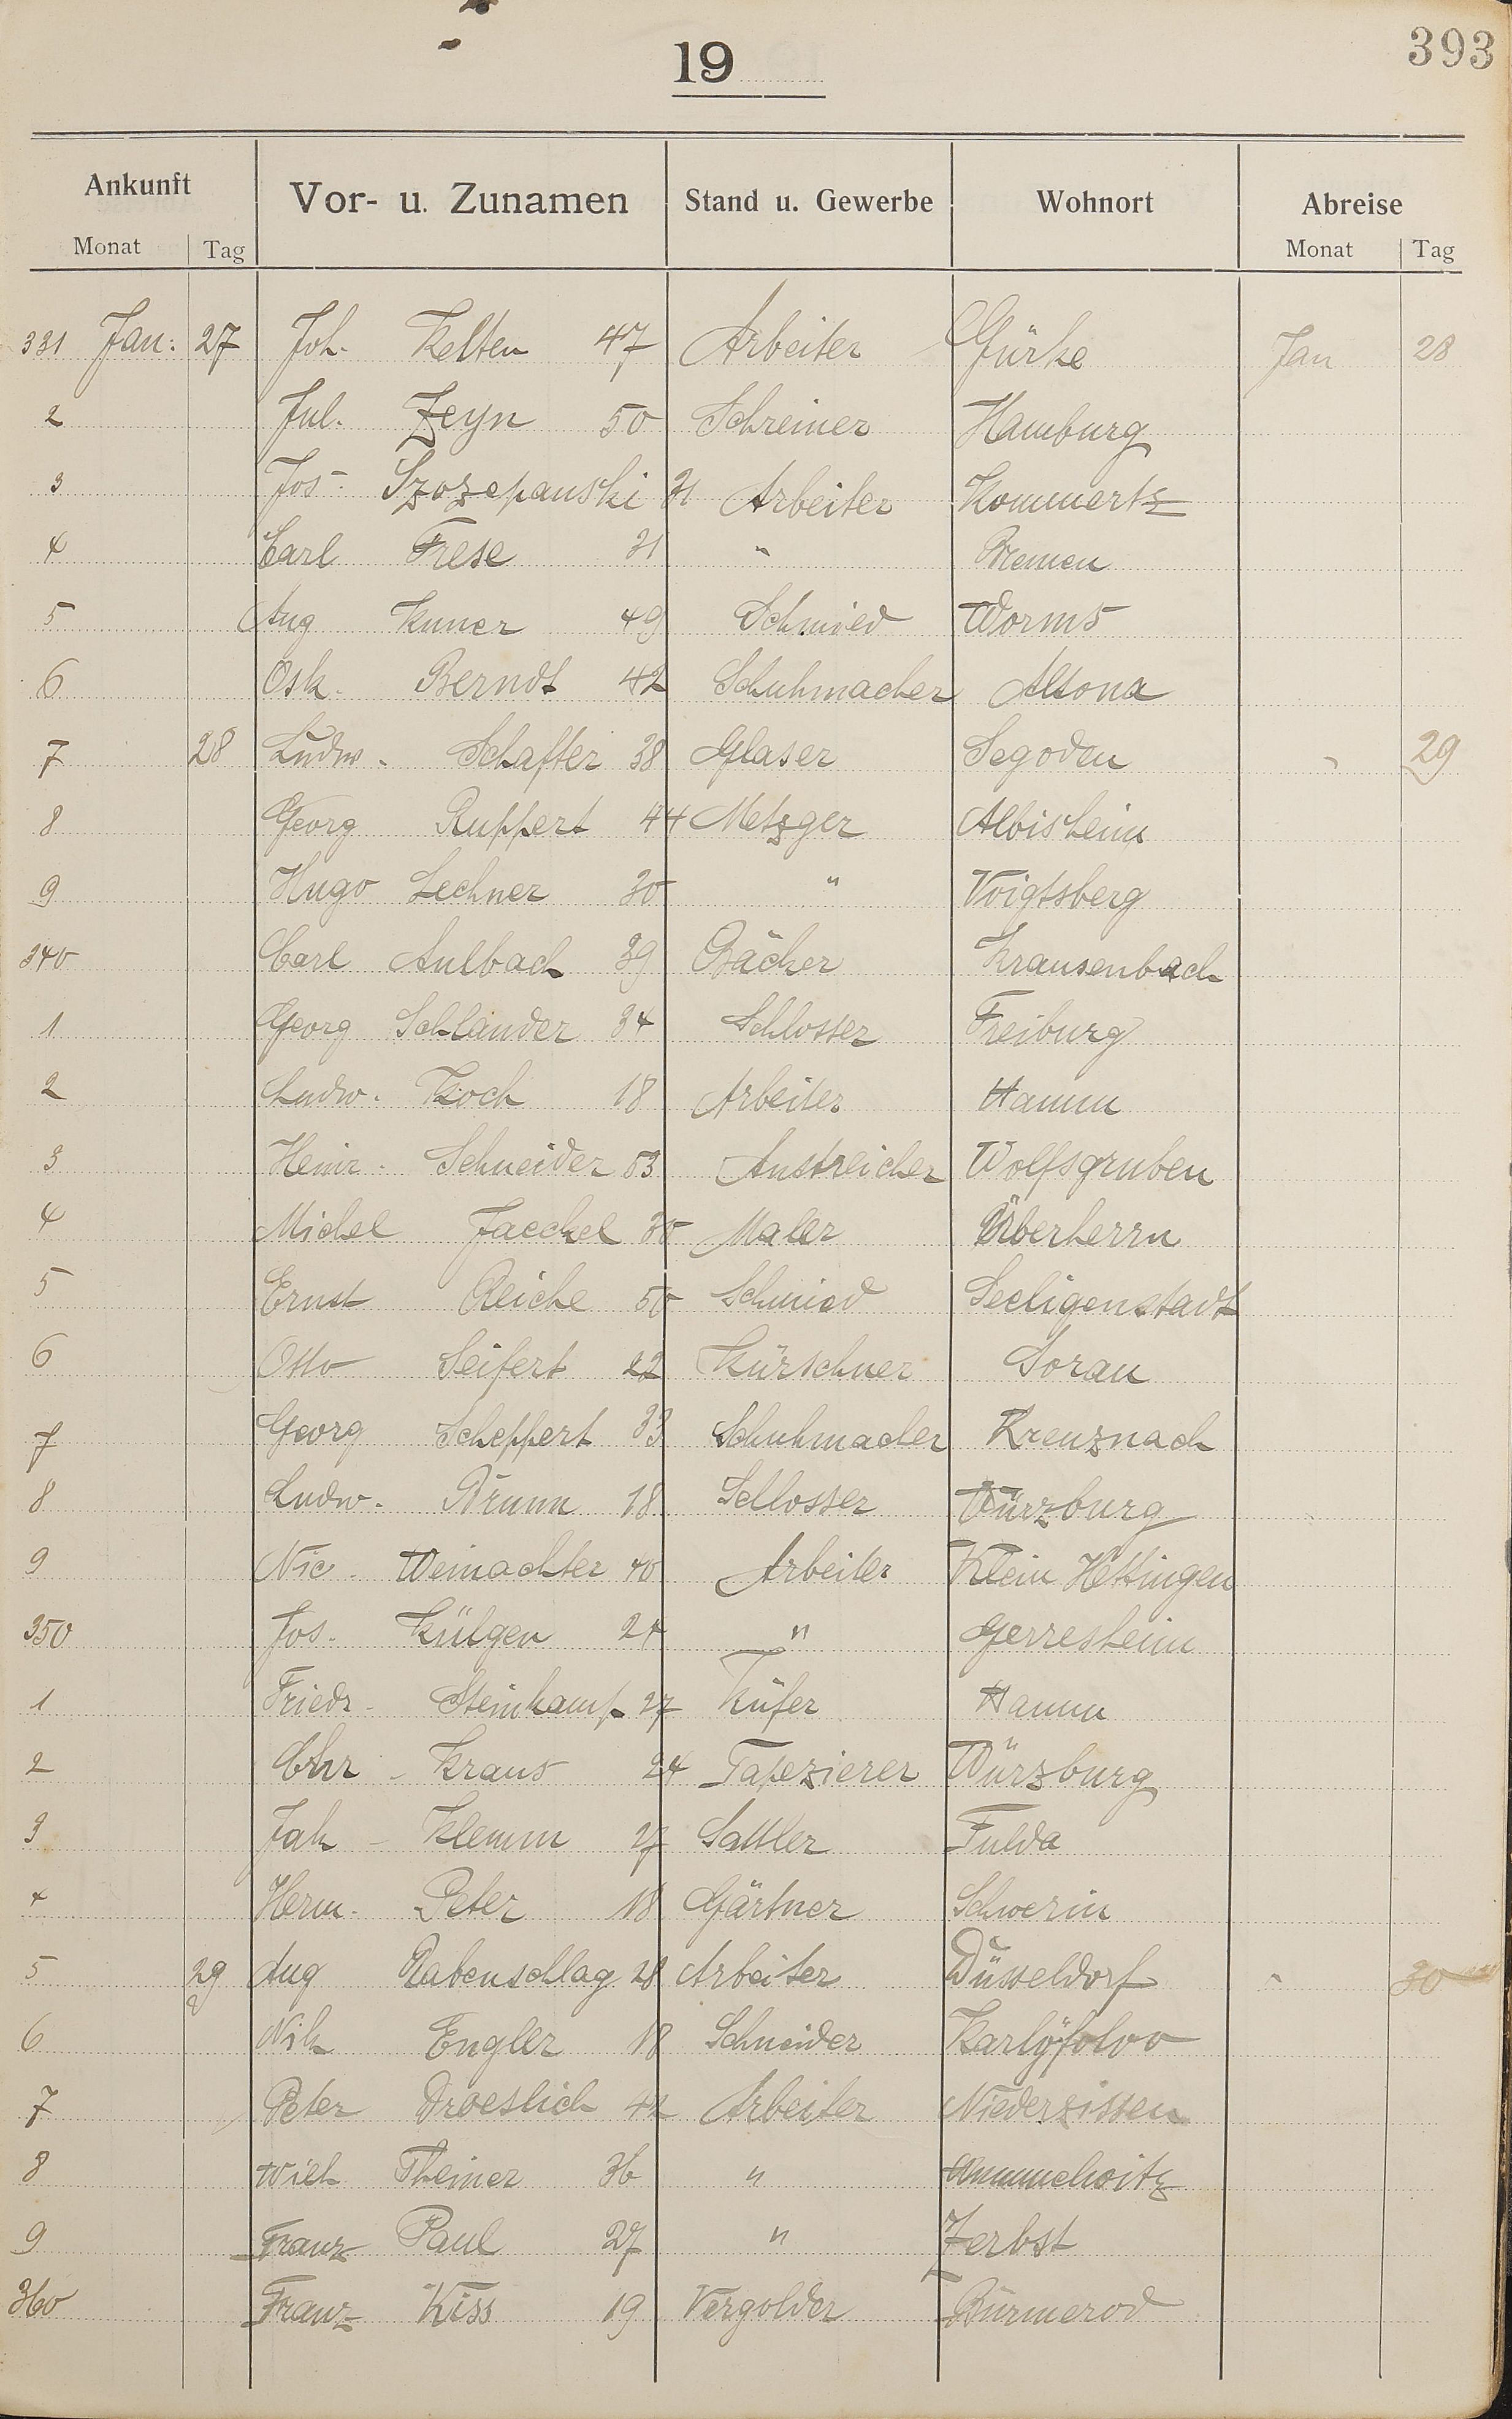 393
19
Ankunft Vor- u. Zunamen Stand u. Gewerbe Wohnort Abreise
Monat Tag Monat Tag
331 Jan: 27 Joh. Kelten 47 Arbeiter Gürke Jan 28
2 Jul. Zeyn 50 Schreiner Hamburg
3 Jos. Szozepanski 31 Arbeiter Kommertz
4 Carl Frese 31 " Bremen
5 Aug Kuner 49 Schmied Worms
6 Osk. Berndt 42 Schuhmacher Altona
7 28 Ludw. Schafter 38 Glaser Segoden " 29
8 Georg Ruppert 44 Metzger Albisheim
9 Hugo Lechner 30 " Voigtsberg
340 Carl Aulbach 39 Bäcker Krausenbach
1 Georg Schlander 34 Schlosser Freiburg
2 Ludw. Koch 18 Arbeiter Hamm
3 Heinr. Schneider 53 Anstreicher Wolfsgruben
4 Michel Jaeckel 30 Maler Überherrn
5 Ernst Reiche 50 Schmied Seeligenstadt
6 Otto Seifert 22 Kürschner Sorau
7 Georg Scheppert 33 Schuhmacher Kreuznach
8 Ludw. Brunn 18 Schlosser Würzburg
9 Nic. Weinachter 40 Arbeiter Klein Hettingen
350 Jos. Külgen 24 " Gerresheim
1 Friedr. Steinkamp 27 Küfer Hamm
2 Chr. Kraus 24 Tapezierer Würzburg
3 Jak. Klemm 27 Sattler Fulda
4 Herm. Peter 18 Gärtner Schwerin
5 29 Aug Rabenschlag 28 Arbeiter Düsseldorf " 30
6 Nik Engler 18 Schneider
7 Peter Droeslich 42 Arbeiter Niederzissen
8 Wilh Theiner 36 "
9 Franz Paul 27 " Zerbst
360 Franz Kiss 19 Vergolder Burmerod